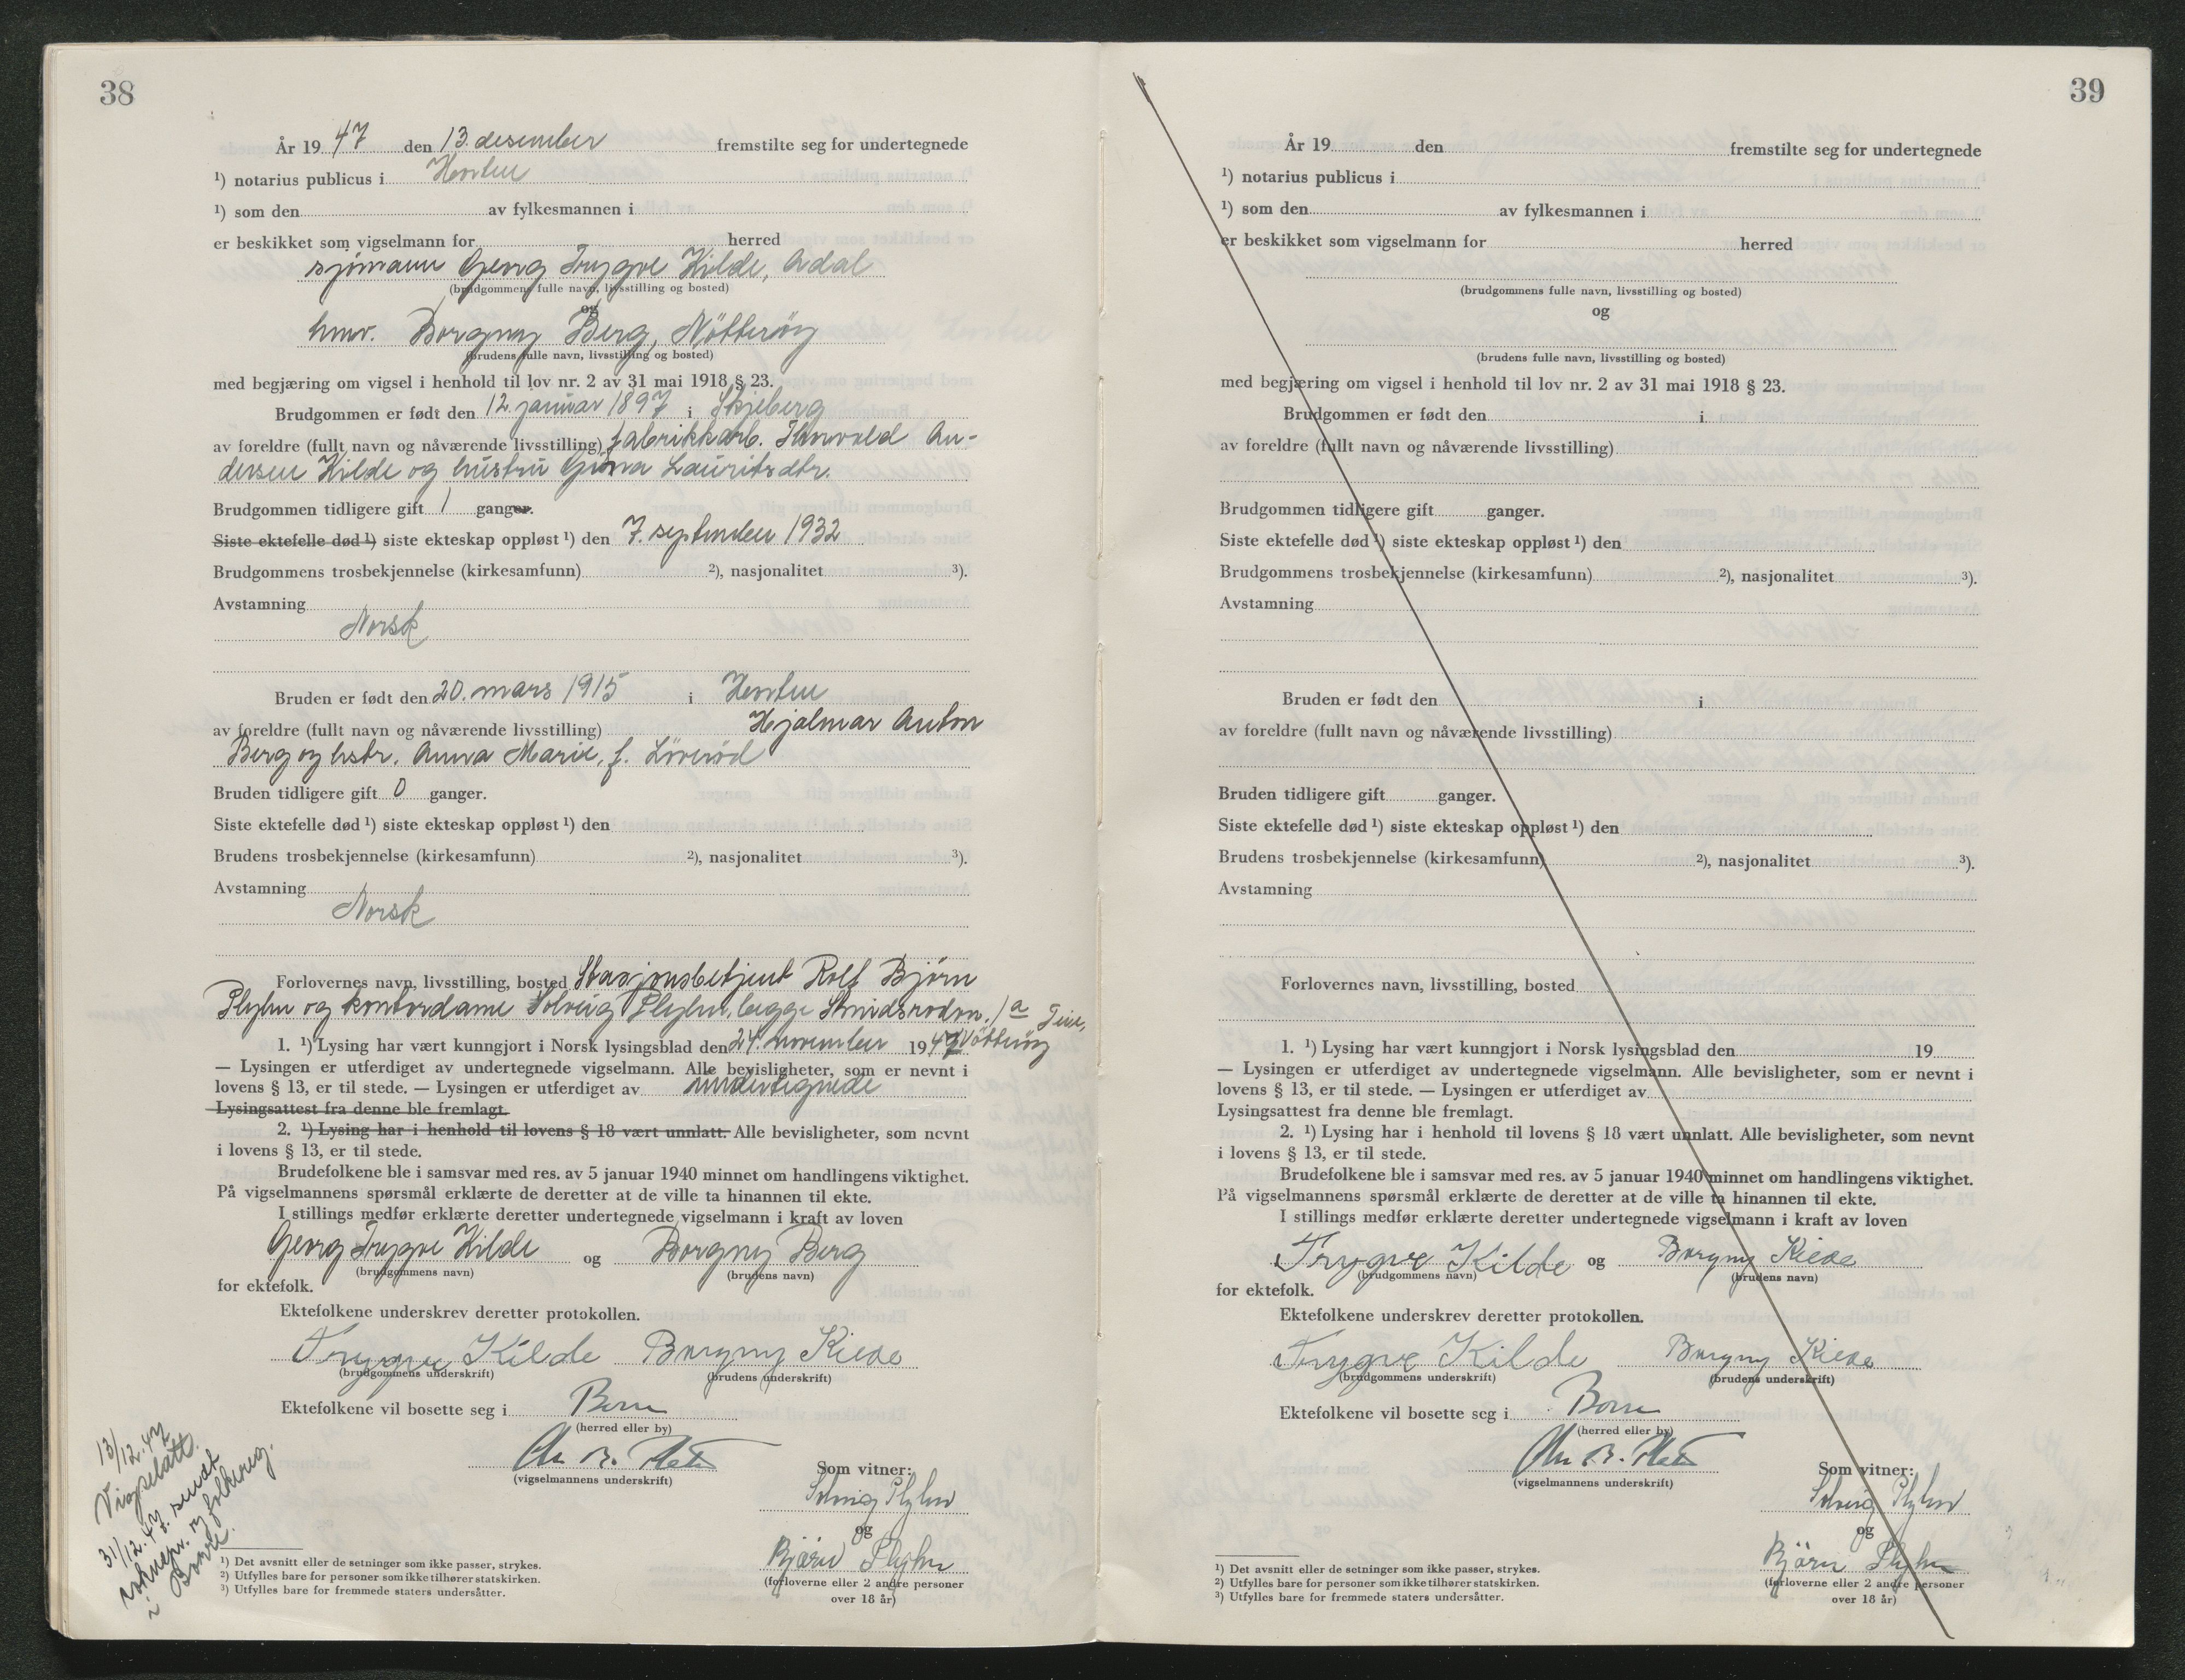 38
År 19 47 den 13. desember fremstilte seg for undertegnede
¹) notarius publicus i Horten
¹) som den av fylkesmannen i
er beskikket som vigselmann for herred
sjömann Georg Trygve Kilde, Adal
(brudgommens fulle navn, livsstilling og bosted)
og
hmv. Borgny Berg, Nötteröy
(brudens fulle navn, livsstilling og bosted)
med begjæring om vigsel i henhold til lov nr. 2 av 31 mai 1918 § 23.
Brudgommen er født den 12. januar 1897 i Skjeberg
av foreldre (fullt navn og nåværende livsstilling) fabrikkarb. Thorvald An-
dersen Kilde og hustru Gunda Lauritsdtr.
Brudgommen tidligere gift 1 ganger.
Siste ektefelle død ¹) siste ekteskap oppløst ¹) den 7. september 1932
Brudgommens trosbekjennelse (kirkesamfunn) ²), nasjonalitet ³).
Avstamning
Norsk
Bruden er født den 20. mars 1915 i Horten
av foreldre (fullt navn og nåværende livsstilling) Hjalmar Anton
Berg og hstr. Anna Marie, f. Löveröd
Bruden tidligere gift 0 ganger.
Siste ektefelle død ¹) siste ekteskap oppløst ¹) den
Brudens trosbekjennelse (kirkesamfunn) ²), nasjonalitet ³).
Avstamning
Norsk
Forlovernes navn, livsstilling, bosted Stasjonsbetjent Rolf Björn
Plyhn og kontordame Solveig Plyhn, begge Smidsrödvn. 1 a Teie,
Nötteröy
1. ¹) Lysing har vært kunngjort i Norsk lysingsblad den 24. november 1947
— Lysingen er utferdiget av undertegnede vigselmann. Alle bevisligheter, som er nevnt i
lovens § 13, er til stede. — Lysingen er utferdiget av undertegnede
Lysingsattest fra denne ble fremlagt.
2. ¹) Lysing har i henhold til lovens § 18 vært unnlatt. Alle bevisligheter, som nevnt
i lovens § 13, er til stede.
Brudefolkene ble i samsvar med res. av 5 januar 1940 minnet om handlingens viktighet.
På vigselmannens spørsmål erklærte de deretter at de ville ta hinannen til ekte.
I stillings medfør erklærte deretter undertegnede vigselmann i kraft av loven
Georg Trygve Kilde og Borgny Berg
(brudgommens navn) (brudens navn)
for ektefolk.
Ektefolkene underskrev deretter protokollen.
Trygve Kilde Borgny Kilde
(brudgommens underskrift) (brudens underskrift)
Ektefolkene vil bosette seg i Borre
(herred eller by)
(vigselmannens underskrift)
Som vitner:
Solveig Plyhn
og
Björn Plyhn
(forloverne eller 2 andre personer
over 18 år)
13/12.47
Vigselatt.
31/12.47. sendt
soknepr. og folkereg.
i Borre.
¹) Det avsnitt eller de setninger som ikke passer, strykes.
²) Utfylles bare for personer som ikke tilhører statskirken.
³) Utfylles bare for fremmede staters undersåtter.
39
År 19 den fremstilte seg for undertegnede
¹) notarius publicus i
¹) som den av fylkesmannen i
er beskikket som vigselmann for herred
(brudgommens fulle navn, livsstilling og bosted)
og
(brudens fulle navn, livsstilling og bosted)
med begjæring om vigsel i henhold til lov nr. 2 av 31 mai 1918 § 23.
Brudgommen er født den i
av foreldre (fullt navn og nåværende livsstilling)
Brudgommen tidligere gift ganger.
Siste ektefelle død ¹) siste ekteskap oppløst ¹) den
Brudgommens trosbekjennelse (kirkesamfunn) ²), nasjonalitet ³).
Avstamning
Bruden er født den i
av foreldre (fullt navn og nåværende livsstilling)
Bruden tidligere gift ganger.
Siste ektefelle død ¹) siste ekteskap oppløst ¹) den
Brudens trosbekjennelse (kirkesamfunn) ²), nasjonalitet ³).
Avstamning
Forlovernes navn, livsstilling, bosted
1. ¹) Lysing har vært kunngjort i Norsk lysingsblad den 19
— Lysingen er utferdiget av undertegnede vigselmann. Alle bevisligheter, som er nevnt i
lovens § 13, er til stede. — Lysingen er utferdiget av
Lysingsattest fra denne ble fremlagt.
2. ¹) Lysing har i henhold til lovens § 18 vært unnlatt. Alle bevisligheter, som nevnt
i lovens § 13, er til stede.
Brudefolkene ble i samsvar med res. av 5 januar 1940 minnet om handlingens viktighet.
På vigselmannens spørsmål erklærte de deretter at de ville ta hinannen til ekte.
I stillings medfør erklærte deretter undertegnede vigselmann i kraft av loven
Trygve Kilde og Borgny Kilde
(brudgommens navn) (brudens navn)
for ektefolk.
Ektefolkene underskrev deretter protokollen.
Trygve Kilde Borgny Kilde
(brudgommens underskrift) (brudens underskrift)
Ektefolkene vil bosette seg i Borre
(herred eller by)
(vigselmannens underskrift)
Som vitner:
Solveig Plyhn
og
Björn Plyhn
(forloverne eller 2 andre personer
over 18 år)
¹) Det avsnitt eller de setninger som ikke passer, strykes.
²) Utfylles bare for personer som ikke tilhører statskirken.
³) Utfylles bare for fremmede staters undersåtter.